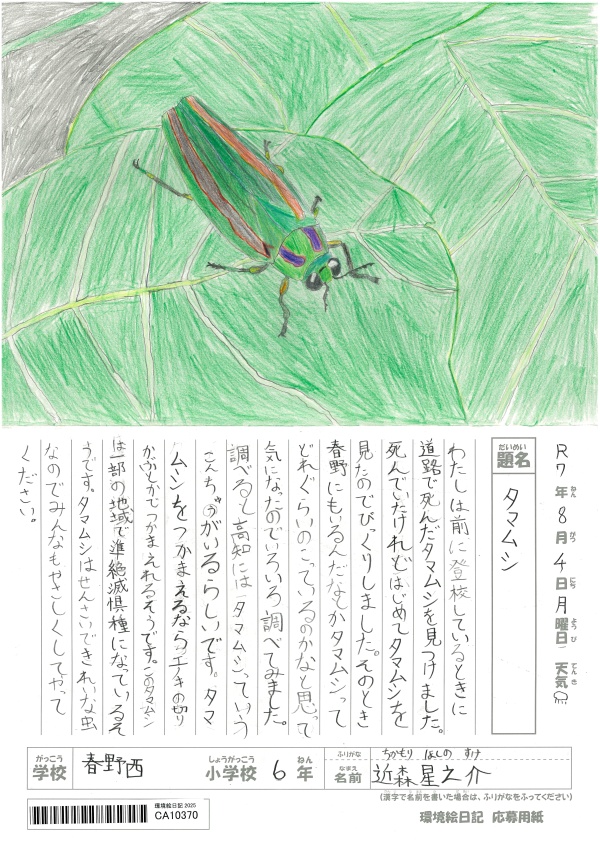 R7年8月4日月曜日 天気
ねん がつ にち ようび てんき
だいめい
題名
タマムシ
わたしは前に登校しているときに
道路で死んだタマムシを見つけました。
死んでいたけれどはじめてタマムシを
見たのでびっくりしました。そのとき
春野にもいるんだなとかタマムシって
どれぐらいのこっているのかなと思って
気になったのでいろいろ調べてみました。
調べると高知には「タマムシっていう
こんちゅうがいるらしいです。タマ
ムシをつかまえるならエノキの切り
かぶとかでつかまえれるそうです。このタマムシ
は一部の地域で準絶滅惧種になっているそ
うです。タマムシはせんさいできれいな虫
なのでみんなもやさしくしてやって
ください。
がっこう
学校
春野西
しょうがっこう
小学校
6
ねん
年
ふりがな
ちかもり ほしのすけ
なまえ
名前
近森星之介
(漢字で名前を書いた場合は、ふりがなをふってください)
環境絵日記 2025
CA10370
環境絵日記 応募用紙